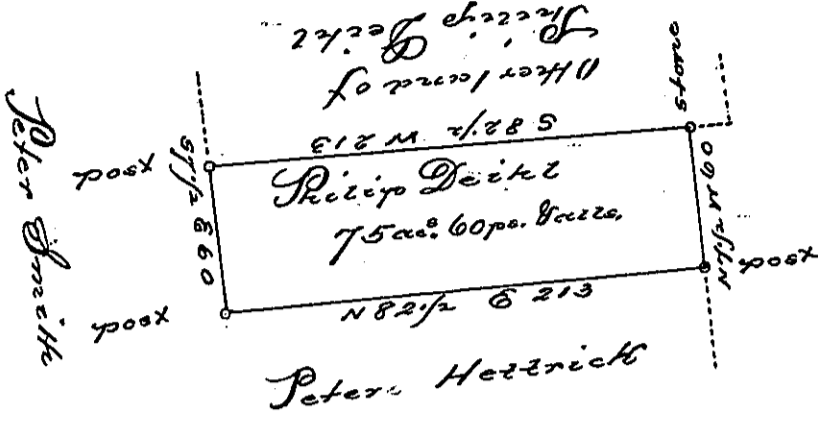 Other land of
Philip Deihl
Stone
S 82 1/2 W 213
Peter Smith
post
S 7 1/2 E 60
Philip Deihl
75 acs. 60 ps. &
N 7 1/2 W 60
post
post
N 82 1/2 E 213
Peter Hettrick